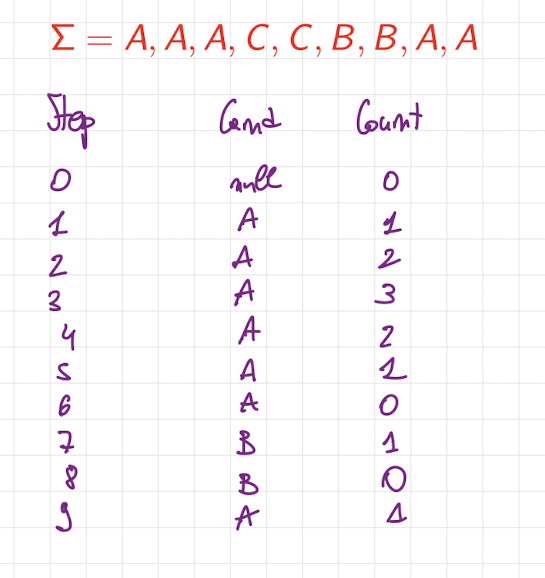 Σ = A, A, A, C, C, B, B, A, A
Step Cand Count
0 null 0
1 A 1
2 A 2
3 A 3
4 A 2
5 A 1
6 A 0
7 B 1
8 B 0
9 A 1